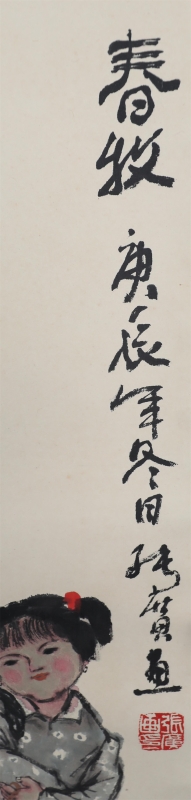 春牧 庚辰年冬日 張廣画
張廣
画印